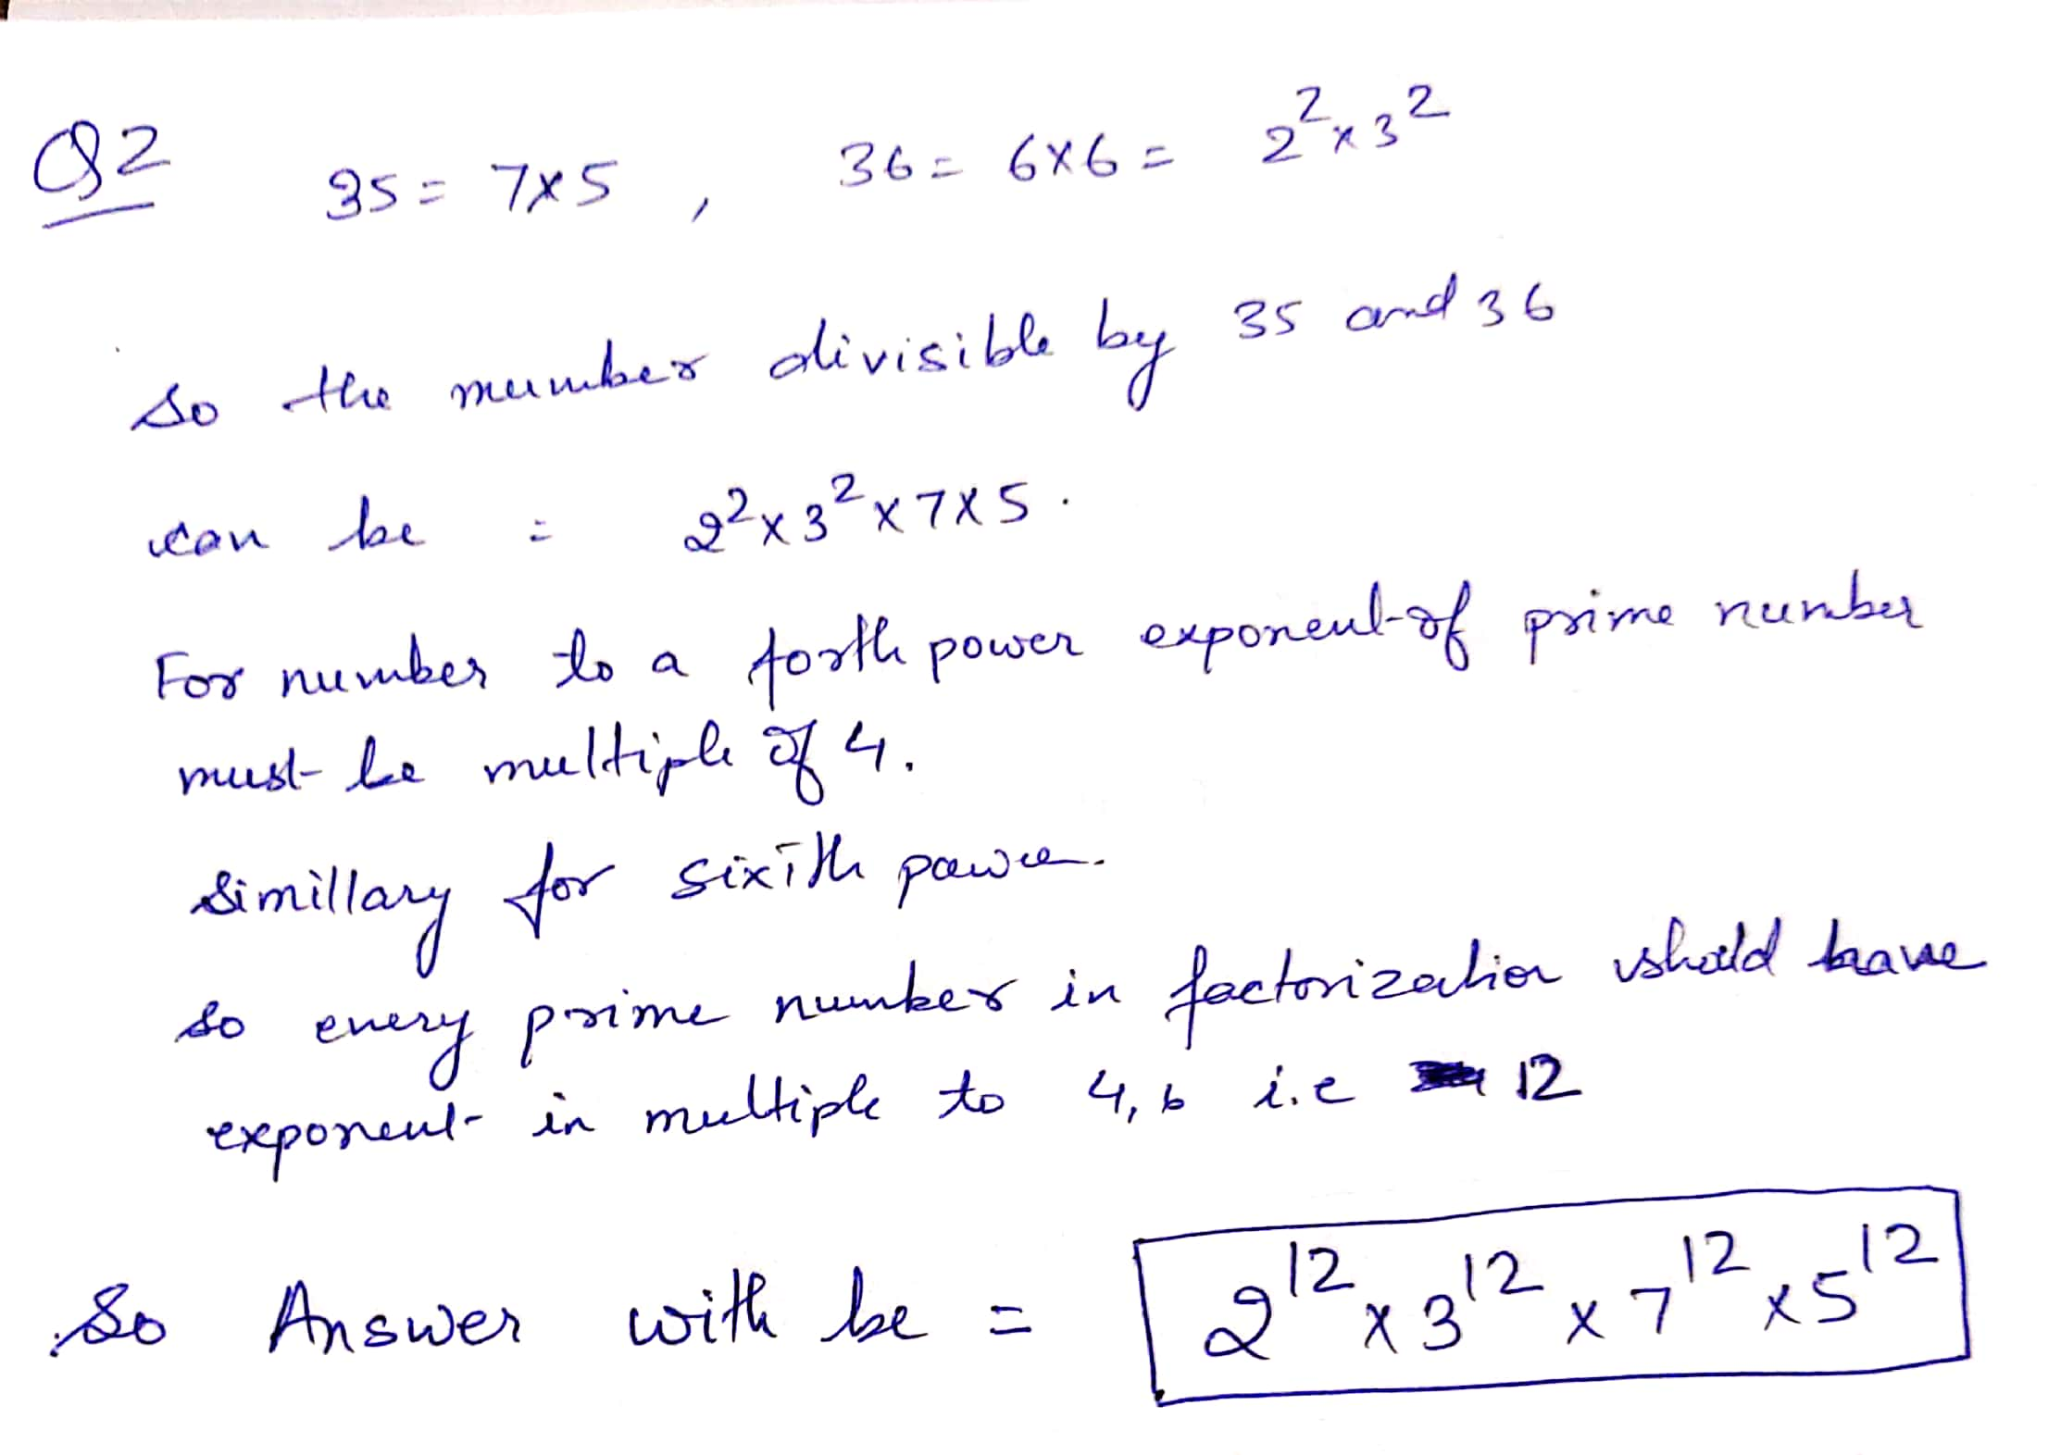 Q2 35 = 7x5 , 36 = 6x6 = 2²x3²
So the number divisible by 35 and 36
can be = 2²x3²x7x5.
For number to a forth power exponent of prime number
must be multiple of 4.
Simillary for sixith power.
So every prime number in factorization should have
exponent in multiple to 4,6 i.e 12
So Answer with be = 2¹²x3¹²x7¹²x5¹²